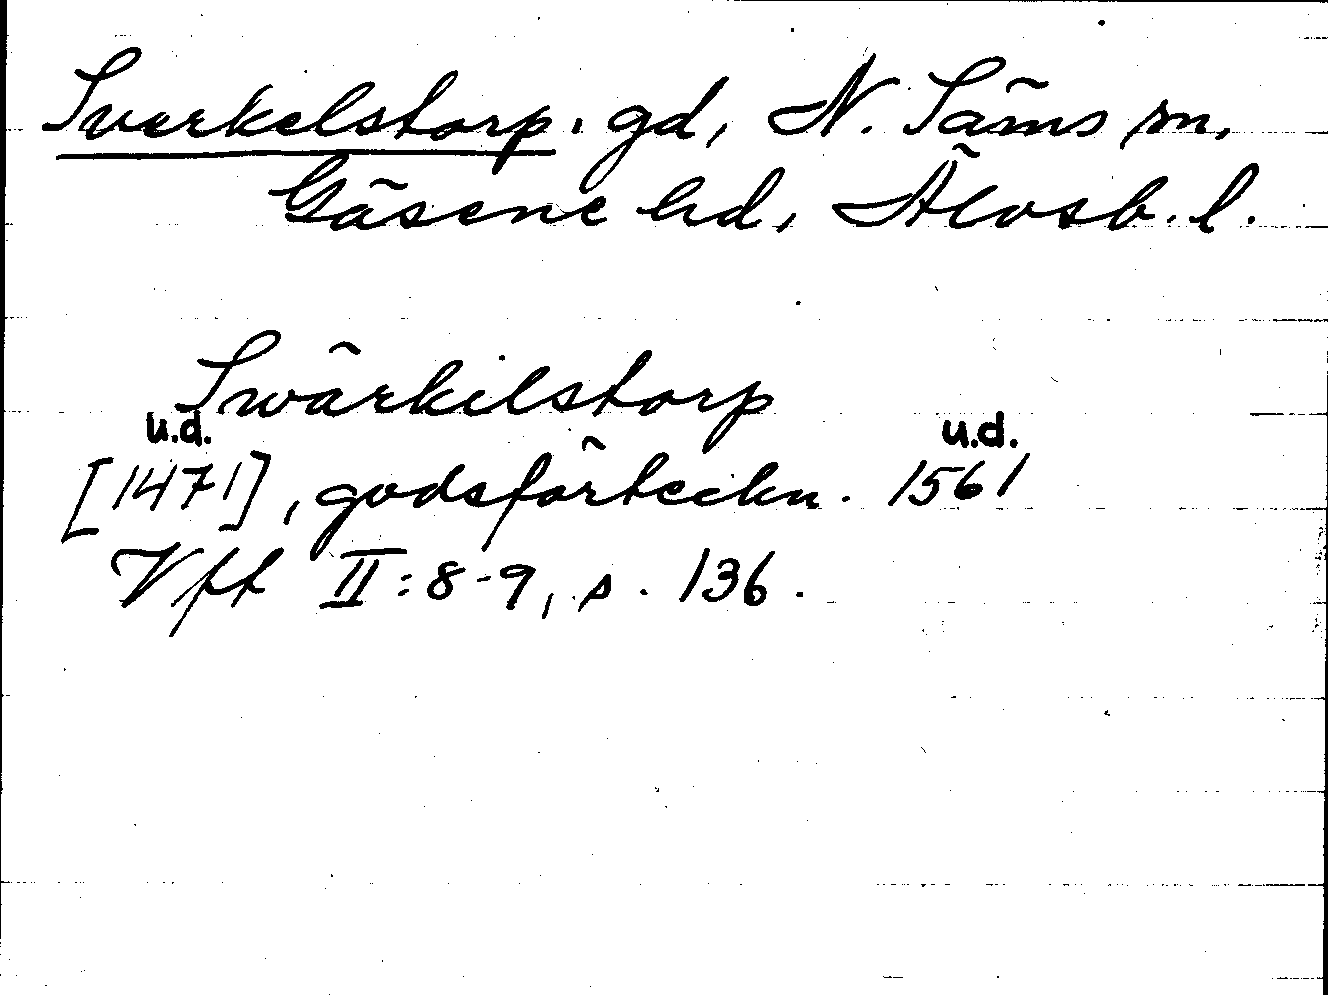 Sverkelstorp. gd, N. Säms sn,
Gäsene hd, Älvsb. l.
Swärkilstorp
u.d. u.d.
[1471], godsförteckn. 1561
Vft II: 8-9, s. 136.